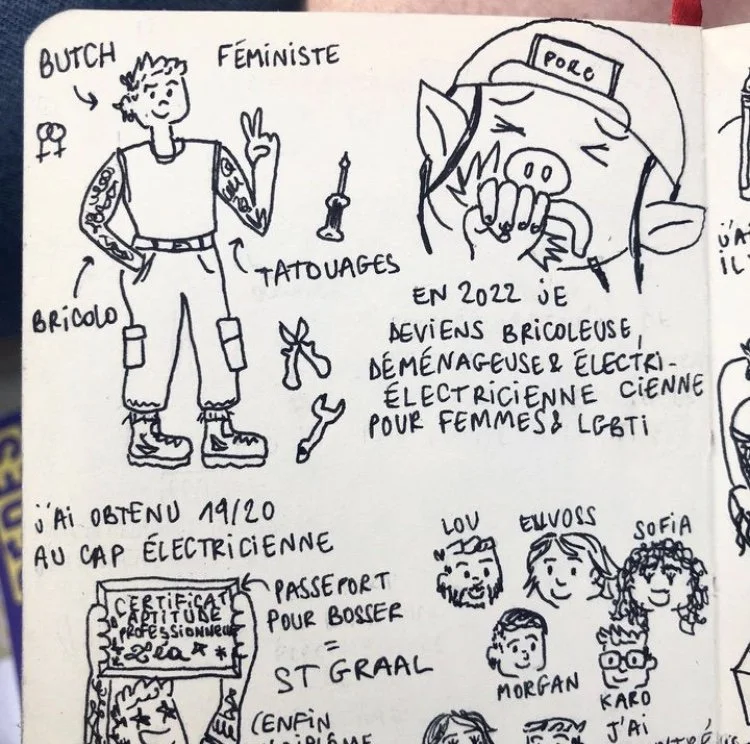 BUTCH
FÉMINISTE
PORC
TATOUAGES
BRICOLO
EN 2022 JE
DEVIENS BRICOLEUSE,
DÉMÉNAGEUSE & ÉLECTRI-
ÉLECTRICIENNE CIENNE
POUR FEMMES & LGBTI
J'AI OBTENU 19/20
AU CAP ÉLECTRICIENNE
CERTIFICAT
D'APTITUDE
PROFESSIONNELLE
PASSEPORT
POUR BOSSER
=
ST GRAAL
(ENFIN
LOU
ENVOSS
SOFIA
MORGAN
KARO
J'AI
J'AI
IL